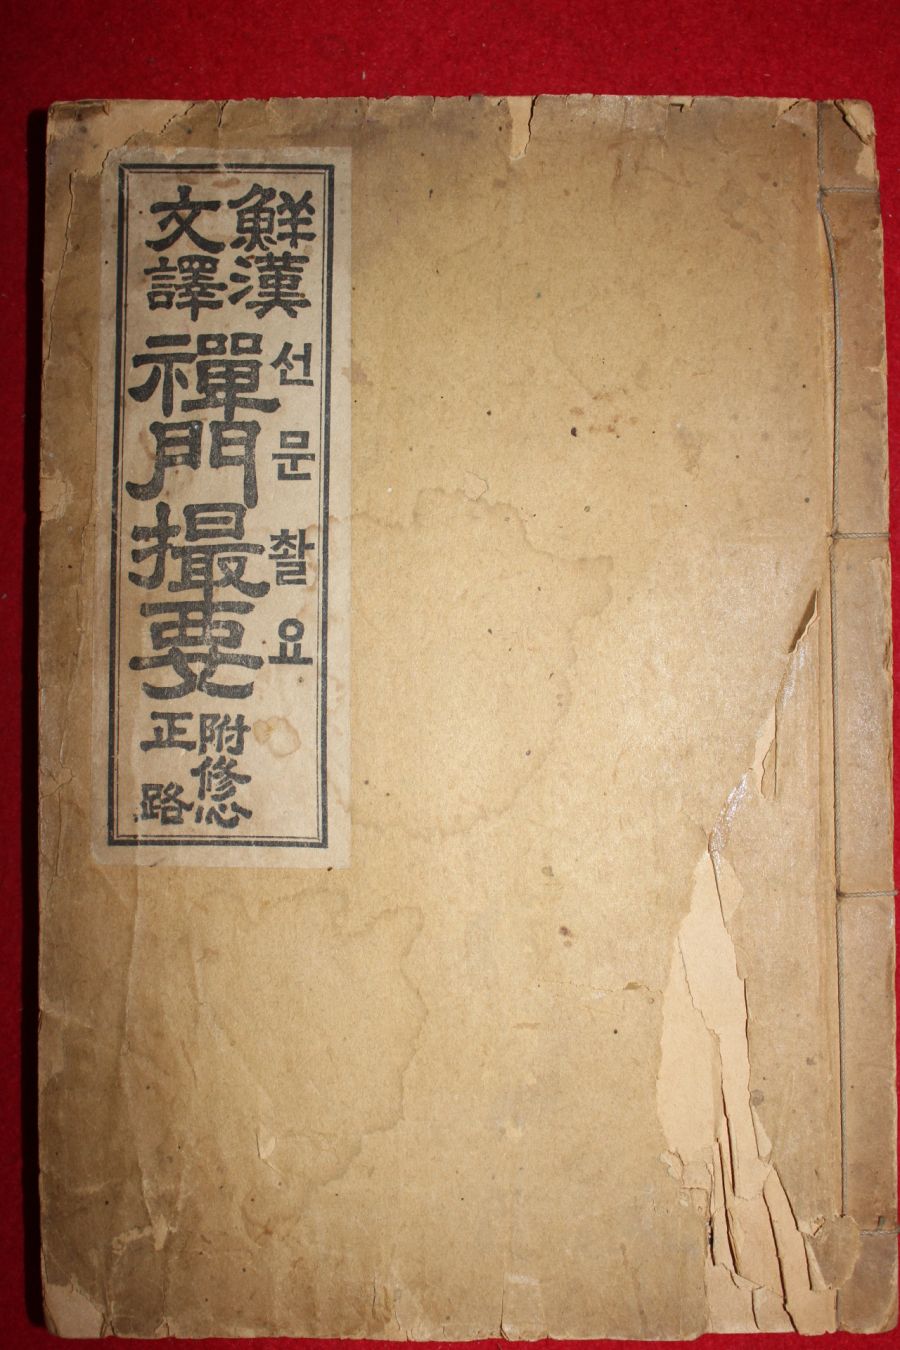 鮮漢
文譯
禪門撮要
선문촬요
附修心
正路